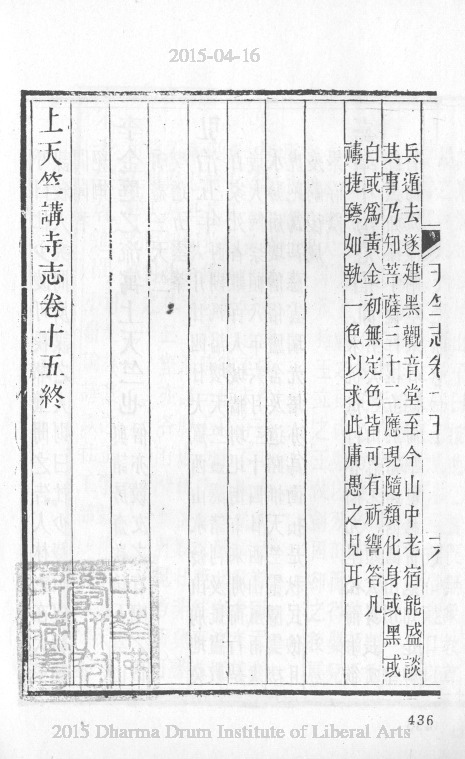 2015-04-16
天竺志卷十五 十六
兵遁去遂建黑觀音堂至今山中老宿能盛談
其事乃知菩薩三十二應現隨類化身或黑或
白或爲黃金初無定色皆可有祈響答凡
禱捷臻如執一色以求此庸愚之見耳
上天竺講寺志卷十五終
436
2015 Dharma Drum Institute of Liberal Arts